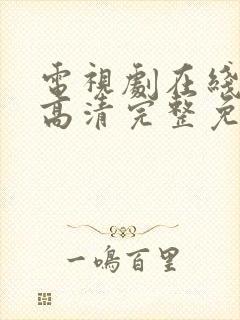 電視劇在綫
高清完整免
一鳴百里